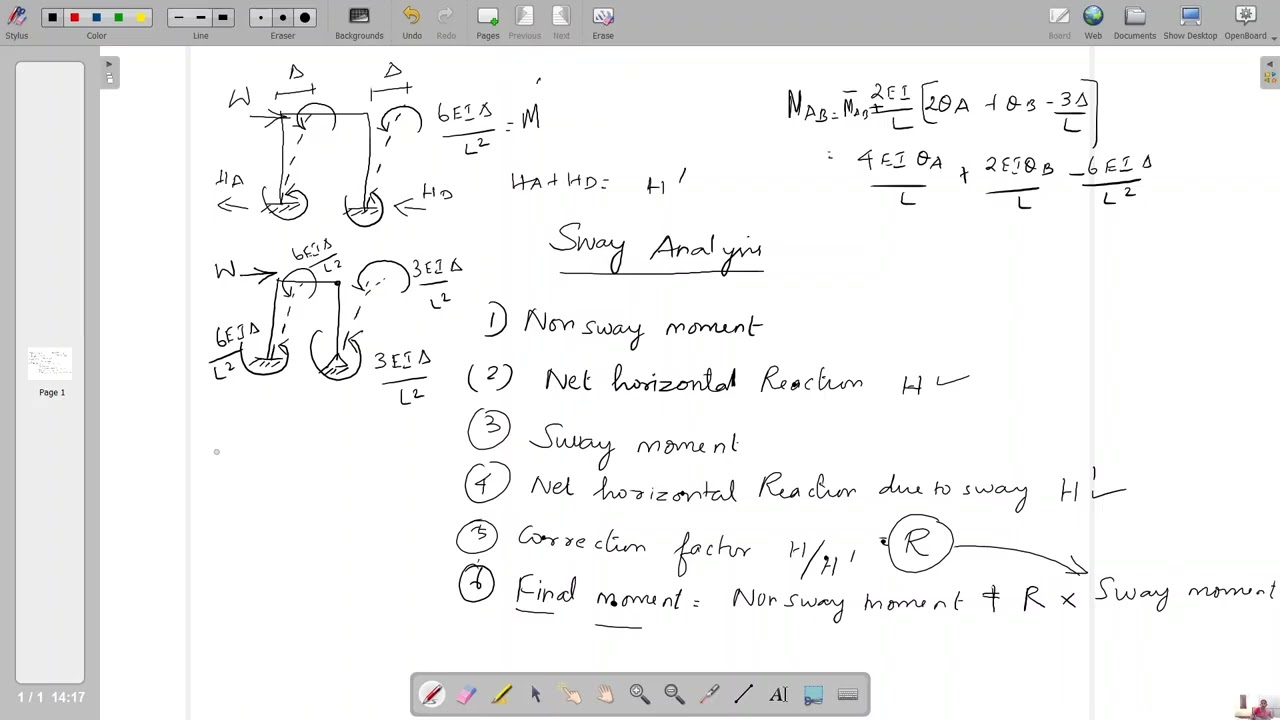 Stylus
Color
Line
Eraser
Backgrounds
Undo
Redo
Pages
Previous
Next
Erase
Board
Web
Documents
Show Desktop
OpenBoard
Δ Δ
W
6EIΔ/L² = M'
HA HD
HA + HD = H'
M_AB = M̄_AB + 2EI/L [2θA + θB - 3Δ/L]
= 4EIθA/L + 2EIθB/L - 6EIΔ/L²
Sway Analysis
W 6EIΔ/L² 3EIΔ/L²
6EIΔ/L² 3EIΔ/L²
1) Non sway moment
(2) Net horizontal Reaction H ✓
3 Sway moment
4 Net horizontal Reaction due to sway H' ✓
5 Correction factor H/H' = R
6 Final moment = Non sway moment + R x Sway moment
Page 1
1 / 1 14:17
AI